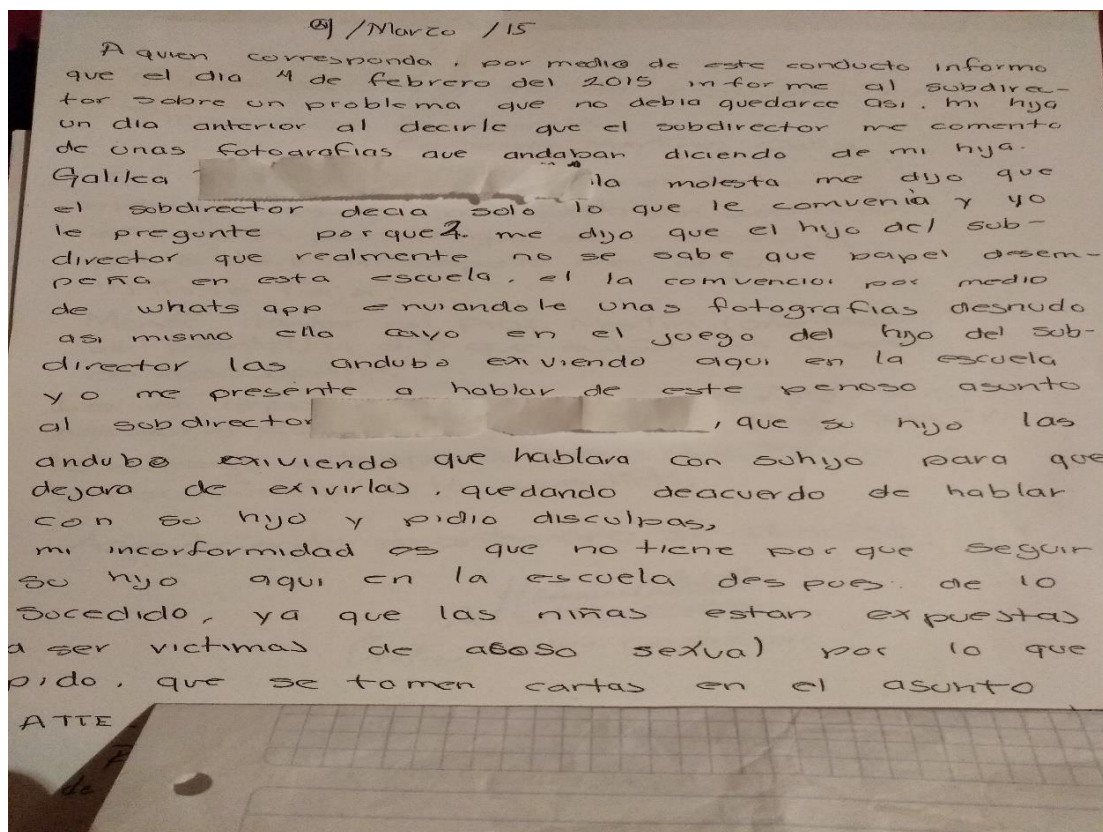 /Marzo /15
A quien corresponda, por medio de este conducto informo
que el dia 4 de febrero del 2015 informe al subdirec-
tor sobre un problema que no debia quedarce asi. mi hija
un dia anterior al decirle que el subdirector me comento
de unas fotografias que andaban diciendo de mi hija.
Galilea la molesta me dijo que
el subdirector decia solo lo que le comvenia y yo
le pregunte porque?. me dijo que el hijo del sub-
director que realmente no se sabe que papel desem-
peña en esta escuela, el la comvencio por medio
de whats app enviandole unas fotografias desnudo
asi mismo ella cayo en el juego del hijo del sub-
director las andubo exiviendo aqui en la escuela
yo me presente a hablar de este penoso asunto
al subdirector , que su hijo las
andubo exiviendo que hablara con suhijo para que
dejara de exivirlas, quedando deacuerdo de hablar
con su hijo y pidio disculpas,
mi incorformidad es que no tiene por que seguir
su hijo aqui en la escuela despues. de lo
sucedido, ya que las niñas estan expuestas
a ser victimas de acoso sexual por lo que
pido, que se tomen cartas en el asunto
ATTE
de